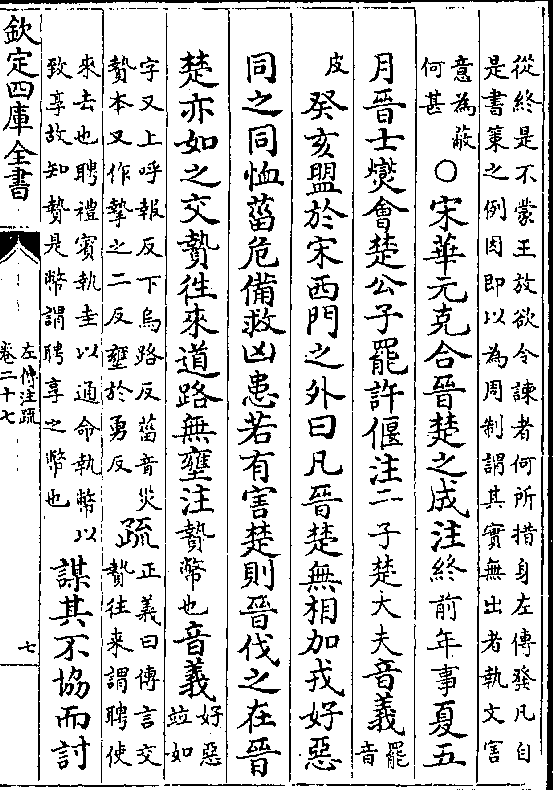 從終是不蒙王放欲令諫者何所措身左傳發凡自
是書策之例因即以為周制謂其實無出者執文害
意為蔽
何甚
○宋華元克合晉楚之成注終前年事夏五
月晉士燮會楚公子罷許偃注二子楚大夫音義罷
音
皮
癸亥盟於宋西門之外曰凡晉楚無相加戎好惡
同之同恤菑危備救凶患若有害楚則晉伐之在晉
楚亦如之交贄往來道路無壅注贄幣也音義好惡
並如
字又上呼報反下烏路反菑音災
贄本又作摯之二反壅於勇反
疏正義曰傳言交
贄往來謂聘使
來去也聘禮賓執圭以通命執幣以
致享故知贄是幣謂聘享之幣也
謀其不協而討
欽定四庫全書
左傳注疏
卷二十七
七